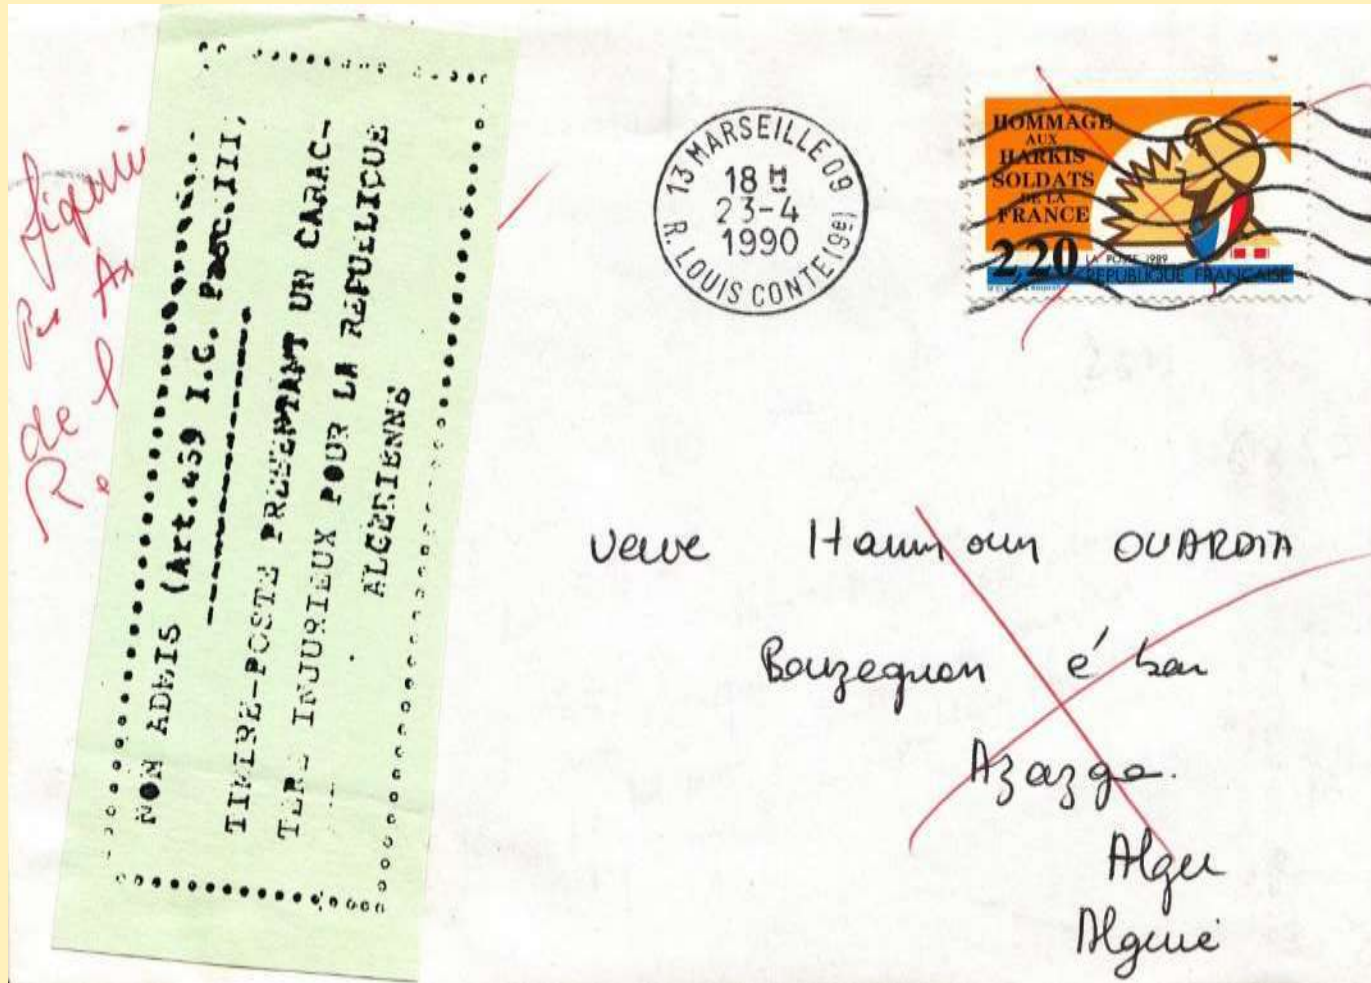 NON ADMIS (Art.439 I.G. Fasc.III,
TIMBRE-POSTE PRESENTANT UN CARAC-
TERE INJURIEUX POUR LA REPUELICUE
ALGERIENNE
de l
R.
13 MARSEILLE 09
18 H
23-4
1990
R. LOUIS CONTE (9e)
HOMMAGE
AUX
HARKIS
SOLDATS
DE LA
FRANCE
2,20
LA POSTE 1989
REPUBLIQUE FRANÇAISE
Veuve Hammoun OUARDIA
Bouzeguen
Azazga.
Alger
Algerie